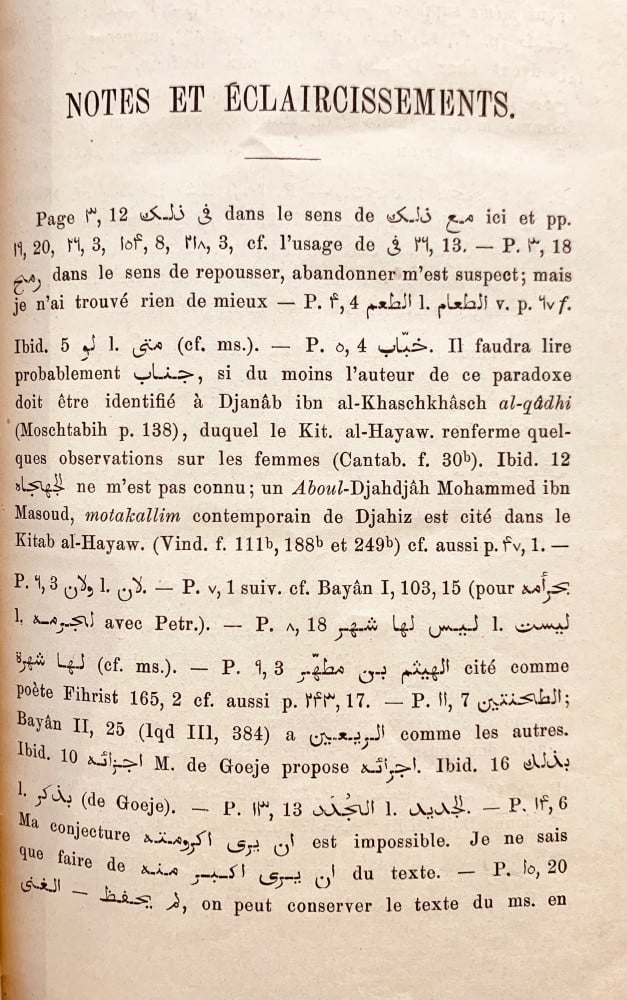 NOTES ET ÉCLAIRCISSEMENTS.
Page ٣, 12 فى ذلك dans le sens de مع ذلك ici et pp.
١٩, 20, ٢٩, 3, ١٥۴, 8, ٢١٨, 3, cf. l'usage de فى ٣٩, 13. — P. ٣, 18
رمح dans le sens de repousser, abandonner m'est suspect; mais
je n'ai trouvé rien de mieux — P. ۴, 4 الطعم l. الطعام v. p. ٩٧ f.
Ibid. 5 لو l. متى (cf. ms.). — P. ٥, 4 خبّاب. Il faudra lire
probablement جناب, si du moins l'auteur de ce paradoxe
doit être identifié à Djanâb ibn al-Khaschkhâsch al-qâdhi
(Moschtabih p. 138), duquel le Kit. al-Hayaw. renferme quel-
ques observations sur les femmes (Cantab. f. 30ᵇ). Ibid. 12
الجهجاه ne m'est pas connu; un Aboul-Djahdjâh Mohammed ibn
Masoud, motakallim contemporain de Djahiz est cité dans le
Kitab al-Hayaw. (Vind. f. 111ᵇ, 188ᵇ et 249ᵇ) cf. aussi p. ۴٧, 1. —
P. ٦, 3 ولان l. لان. — P. ٧, 1 suiv. cf. Bayân I, 103, 15 (pour
l. avec Petr.). — P. ٨, 18 ليس لها شهر l. ليست
لها شهرة (cf. ms.). — P. ٩, 3 الهيثم بن مطهّر cité comme
poète Fihrist 165, 2 cf. aussi p. ٢۴٣, 17. — P. ١١, 7 الطحنتين;
Bayân II, 25 (Iqd III, 384) a الريعين comme les autres.
Ibid. 10 M. de Goeje propose اجرائه. Ibid. 16 بذلك
l. بذكر (de Goeje). — P. ١٣, 13 الجُدُد l. الجديد. — P. ١۴, 6
Ma conjecture ان يرى اكرومته est impossible. Je ne sais
que faire de ان يرى اكبر منه du texte. — P. ١٥, 20
لم يحفظ — الغنى, on peut conserver le texte du ms. en